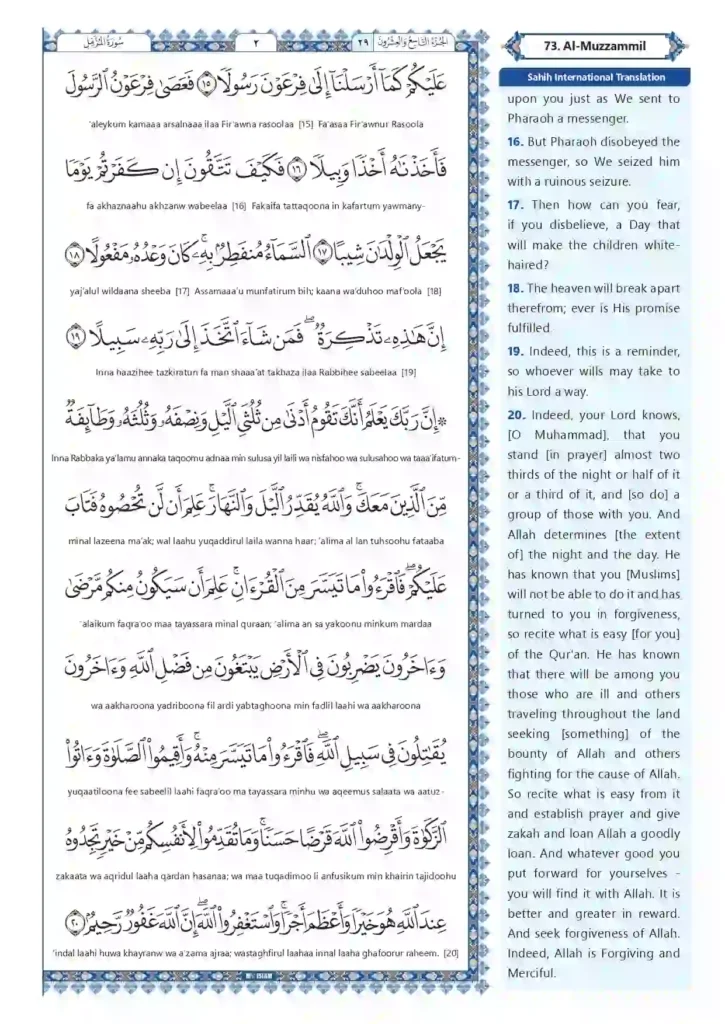 سُورَةُ المُزَّمِّل
٢
٢٩
الجُزءُ التَّاسِعُ وَالعِشرُونَ
عَلَيْكُمْ كَمَآ أَرْسَلْنَآ إِلَىٰ فِرْعَوْنَ رَسُولًا ١٥ فَعَصَىٰ فِرْعَوْنُ ٱلرَّسُولَ
'aleykum kamaaa arsalnaaa ilaa Fir'awna rasoolaa [15] Fa'asaa Fir'awnur Rasoola
فَأَخَذْنَٰهُ أَخْذًا وَبِيلًا ١٦ فَكَيْفَ تَتَّقُونَ إِن كَفَرْتُمْ يَوْمًا
fa akhaznaahu akhzanw wabeelaa [16] Fakaifa tattaqoona in kafartum yawmany-
يَجْعَلُ ٱلْوِلْدَٰنَ شِيبًا ١٧ ٱلسَّمَآءُ مُنفَطِرٌۢ بِهِۦ ۚ كَانَ وَعْدُهُۥ مَفْعُولًا ١٨
yaj'alul wildaana sheeba [17] Assamaaa'u munfatirum bih; kaana wa'duhoo maf'oola [18]
إِنَّ هَٰذِهِۦ تَذْكِرَةٌ ۖ فَمَن شَآءَ ٱتَّخَذَ إِلَىٰ رَبِّهِۦ سَبِيلًا ١٩
Inna haazihee tazkiratun fa man shaaa'at takhaza ilaa Rabbihee sabeelaa [19]
۞ إِنَّ رَبَّكَ يَعْلَمُ أَنَّكَ تَقُومُ أَدْنَىٰ مِن ثُلُثَىِ ٱلَّيْلِ وَنِصْفَهُۥ وَثُلُثَهُۥ وَطَآئِفَةٌ
Inna Rabbaka ya'lamu annaka taqoomu adnaa min sulusa yil laili wa nisfahoo wa sulusahoo wa taaa'ifatum-
مِّنَ ٱلَّذِينَ مَعَكَ ۚ وَٱللَّهُ يُقَدِّرُ ٱلَّيْلَ وَٱلنَّهَارَ ۚ عَلِمَ أَن لَّن تُحْصُوهُ فَتَابَ
minal lazeena ma'ak; wal laahu yuqaddirul laila wanna haar; 'alima al lan tuhsoohu fataaba
عَلَيْكُمْ ۖ فَٱقْرَءُوا۟ مَا تَيَسَّرَ مِنَ ٱلْقُرْءَانِ ۚ عَلِمَ أَن سَيَكُونُ مِنكُم مَّرْضَىٰ
'alaikum faqra'oo maa tayassara minal quraan; 'alima an sa yakoonu minkum mardaa
وَءَاخَرُونَ يَضْرِبُونَ فِى ٱلْأَرْضِ يَبْتَغُونَ مِن فَضْلِ ٱللَّهِ وَءَاخَرُونَ
wa aakharoona yadriboona fil ardi yabtaghoona min fadlil laahi wa aakharoona
يُقَٰتِلُونَ فِى سَبِيلِ ٱللَّهِ ۖ فَٱقْرَءُوا۟ مَا تَيَسَّرَ مِنْهُ ۚ وَأَقِيمُوا۟ ٱلصَّلَوٰةَ وَءَاتُوا۟
yuqaatiloona fee sabeelil laahi faqra'oo ma tayassara minhu wa aqeemus salaata wa aatuz-
ٱلزَّكَوٰةَ وَأَقْرِضُوا۟ ٱللَّهَ قَرْضًا حَسَنًا ۚ وَمَا تُقَدِّمُوا۟ لِأَنفُسِكُم مِّنْ خَيْرٍ تَجِدُوهُ
zakaata wa aqridul laaha qardan hasanaa; wa maa tuqadimoo li anfusikum min khairin tajidoohu
عِندَ ٱللَّهِ هُوَ خَيْرًا وَأَعْظَمَ أَجْرًا ۚ وَٱسْتَغْفِرُوا۟ ٱللَّهَ ۖ إِنَّ ٱللَّهَ غَفُورٌ رَّحِيمٌۢ ٢٠
'indal laahi huwa khayranw wa a'zama ajraa; wastaghfirul laahaa innal laaha ghafoorur raheem. [20]
73. Al-Muzzammil
Sahih International Translation
upon you just as We sent to
Pharaoh a messenger.
16. But Pharaoh disobeyed the
messenger, so We seized him
with a ruinous seizure.
17. Then how can you fear,
if you disbelieve, a Day that
will make the children white-
haired?
18. The heaven will break apart
therefrom; ever is His promise
fulfilled.
19. Indeed, this is a reminder,
so whoever wills may take to
his Lord a way.
20. Indeed, your Lord knows,
[O Muhammad], that you
stand [in prayer] almost two
thirds of the night or half of it
or a third of it, and [so do] a
group of those with you. And
Allah determines [the extent
of] the night and the day. He
has known that you [Muslims]
will not be able to do it and has
turned to you in forgiveness,
so recite what is easy [for you]
of the Qur'an. He has known
that there will be among you
those who are ill and others
traveling throughout the land
seeking [something] of the
bounty of Allah and others
fighting for the cause of Allah.
So recite what is easy from it
and establish prayer and give
zakah and loan Allah a goodly
loan. And whatever good you
put forward for yourselves -
you will find it with Allah. It is
better and greater in reward.
And seek forgiveness of Allah.
Indeed, Allah is Forgiving and
Merciful.